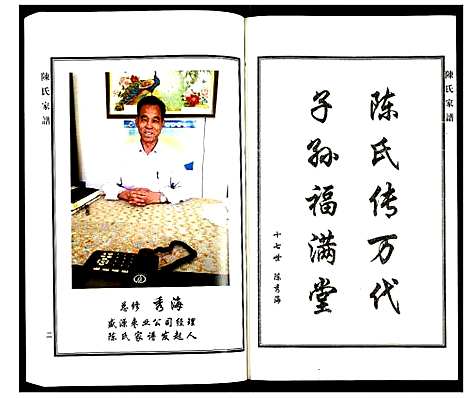 陳氏家譜
陈氏传万代
子孙福满堂
十七世 陈秀海
陳氏家譜
总修 秀海
盛源枣业公司经理
陈氏家谱发起人
二